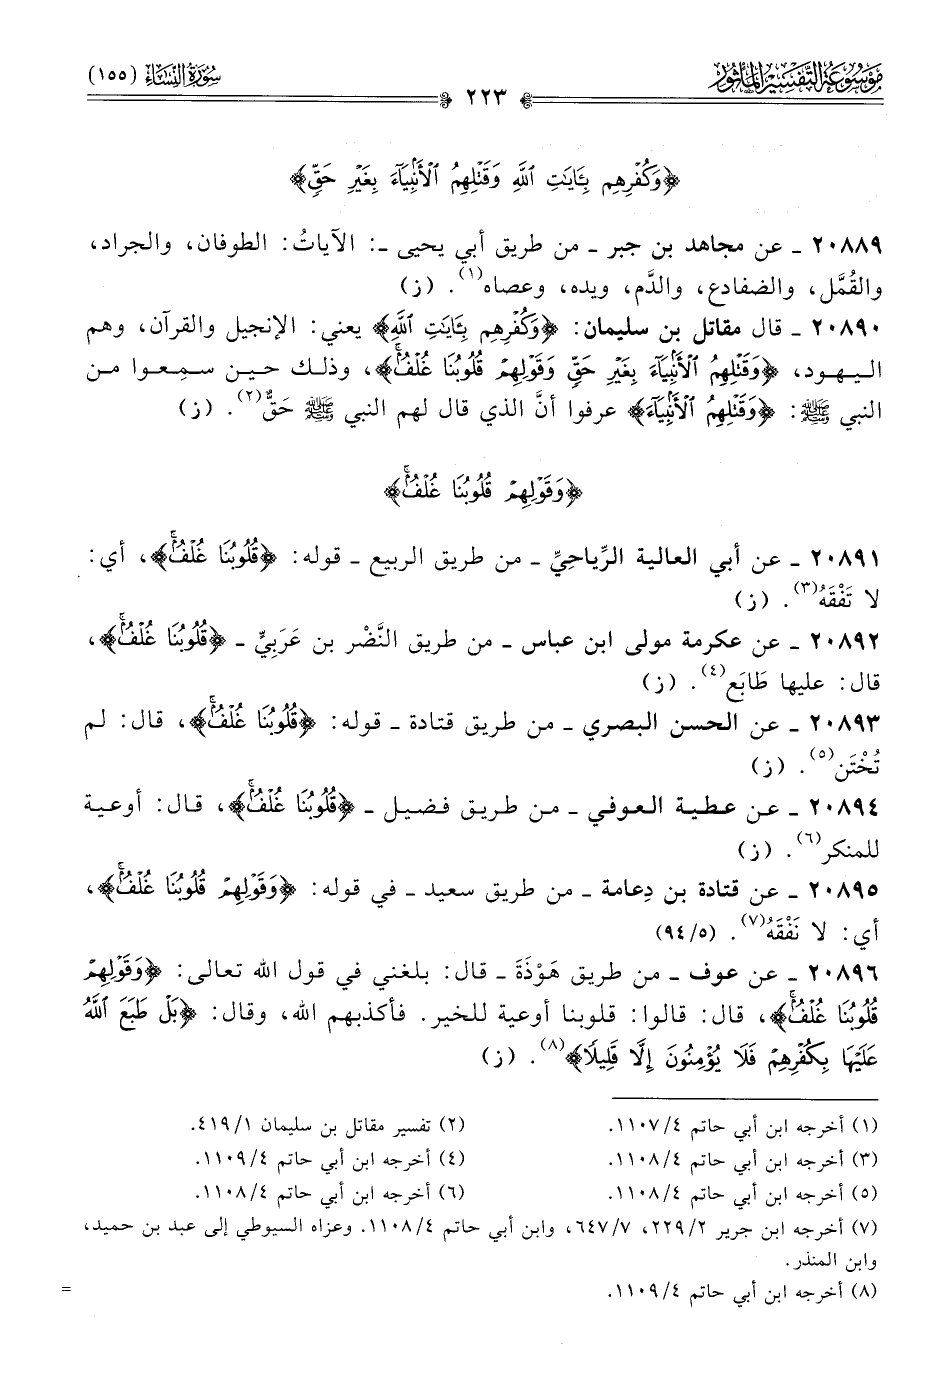 مَوْسُوعَةُ التَّفْسِيرِ المَأْثُورِ
سُورَةُ النِّسَاءِ (١٥٥)
٢٢٣
﴿وَكُفْرِهِم بِـَٔايَـٰتِ ٱللَّهِ وَقَتْلِهِمُ ٱلْأَنۢبِيَآءَ بِغَيْرِ حَقٍّ﴾
٢٠٨٨٩ ـ عن مجاهد بن جبر ـ من طريق أبي يحيى ـ: الآياتُ: الطوفان، والجراد،
والقُمَّل، والضفادع، والدَّم، ويده، وعصاه(١). (ز)
٢٠٨٩٠ ـ قال مقاتل بن سليمان: ﴿وَكُفْرِهِم بِـَٔايَـٰتِ ٱللَّهِ﴾ يعني: الإنجيل والقرآن، وهم
اليهود، ﴿وَقَتْلِهِمُ ٱلْأَنۢبِيَآءَ بِغَيْرِ حَقٍّ وَقَوْلِهِمْ قُلُوبُنَا غُلْفٌۢ﴾، وذلك حين سمعوا من
النبي ﷺ: ﴿وَقَتْلِهِمُ ٱلْأَنۢبِيَآءَ﴾ عرفوا أنَّ الذي قال لهم النبي ﷺ حَقٌّ(٢). (ز)
﴿وَقَوْلِهِمْ قُلُوبُنَا غُلْفٌۢ﴾
٢٠٨٩١ ـ عن أبي العالية الرِّياحيِّ ـ من طريق الربيع ـ قوله: ﴿قُلُوبُنَا غُلْفٌۢ﴾، أي:
لا تَفْقَهُ(٣). (ز)
٢٠٨٩٢ ـ عن عكرمة مولى ابن عباس ـ من طريق النَّضْر بن عَرَبِيٍّ ـ ﴿قُلُوبُنَا غُلْفٌۢ﴾،
قال: عليها طَابَع(٤). (ز)
٢٠٨٩٣ ـ عن الحسن البصري ـ من طريق قتادة ـ قوله: ﴿قُلُوبُنَا غُلْفٌۢ﴾، قال: لم
تُخْتَن(٥). (ز)
٢٠٨٩٤ ـ عن عطية العوفي ـ من طريق فضيل ـ ﴿قُلُوبُنَا غُلْفٌۢ﴾، قال: أوعية
للمنكر(٦). (ز)
٢٠٨٩٥ ـ عن قتادة بن دِعامة ـ من طريق سعيد ـ في قوله: ﴿وَقَوْلِهِمْ قُلُوبُنَا غُلْفٌۢ﴾،
أي: لا نَفْقَهُ(٧). (٥/ ٩٤)
٢٠٨٩٦ ـ عن عوف ـ من طريق هَوْذَةَ ـ قال: بلغني في قول الله تعالى: ﴿وَقَوْلِهِمْ
قُلُوبُنَا غُلْفٌۢ﴾، قال: قالوا: قلوبنا أوعية للخير. فأكذبهم الله، وقال: ﴿بَلْ طَبَعَ ٱللَّهُ
عَلَيْهَا بِكُفْرِهِمْ فَلَا يُؤْمِنُونَ إِلَّا قَلِيلًا﴾(٨). (ز)
(١) أخرجه ابن أبي حاتم ٤/ ١١٠٧.
(٢) تفسير مقاتل بن سليمان ١/ ٤١٩.
(٣) أخرجه ابن أبي حاتم ٤/ ١١٠٨.
(٤) أخرجه ابن أبي حاتم ٤/ ١١٠٩.
(٥) أخرجه ابن أبي حاتم ٤/ ١١٠٨.
(٦) أخرجه ابن أبي حاتم ٤/ ١١٠٨.
(٧) أخرجه ابن جرير ٢/ ٢٢٩، ٧/ ٦٤٧، وابن أبي حاتم ٤/ ١١٠٨. وعزاه السيوطي إلى عبد بن حميد،
وابن المنذر.
(٨) أخرجه ابن أبي حاتم ٤/ ١١٠٩.
=